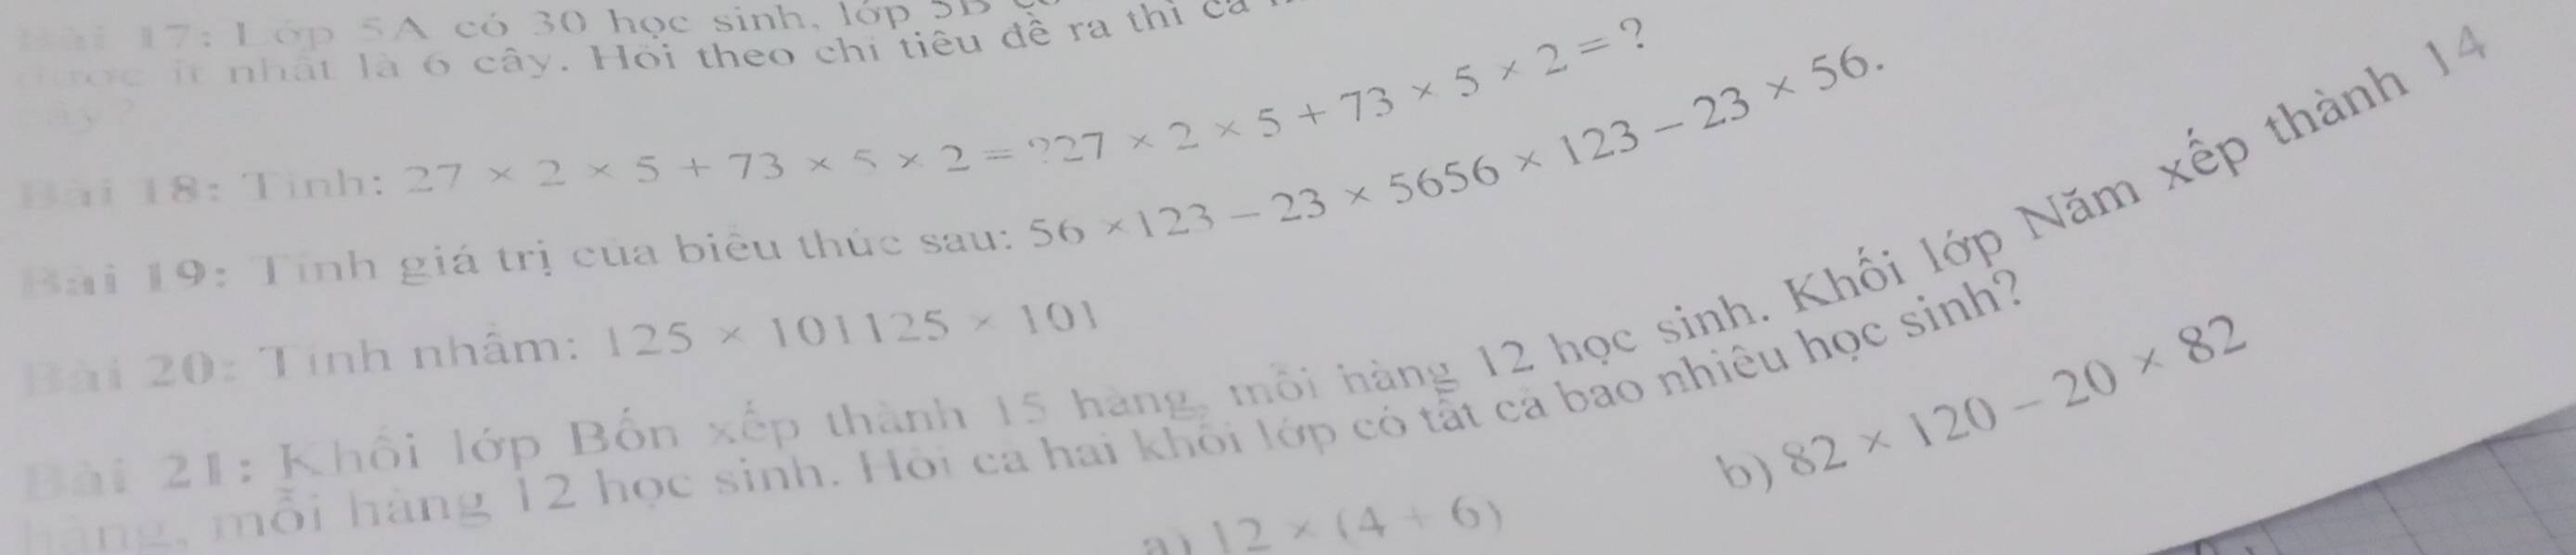 Bài 17: Lớp 5A có 30 học sinh, lớp 5B
được ít nhất là 6 cây. Hỏi theo chỉ tiêu đề ra thì cả
cây?
Bài 18: Tính: 27 × 2 × 5 + 73 × 5 × 2 = ?27 × 2 × 5 + 73 × 5 × 2 = ?
Bài 19: Tính giá trị của biểu thức sau: 56 ×123 – 23 × 5656 × 123 – 23 × 56.
Bài 20: Tính nhẩm: 125 × 101125 × 101
Bài 21: Khối lớp Bốn xếp thành 15 hàng, mỗi hàng 12 học sinh. Khối lớp Năm xếp thành 14
hàng, mỗi hàng 12 học sinh. Hỏi cả hai khối lớp có tất cả bao nhiêu học sinh?
a) 12 × (4 + 6) b) 82 × 120 – 20 × 82